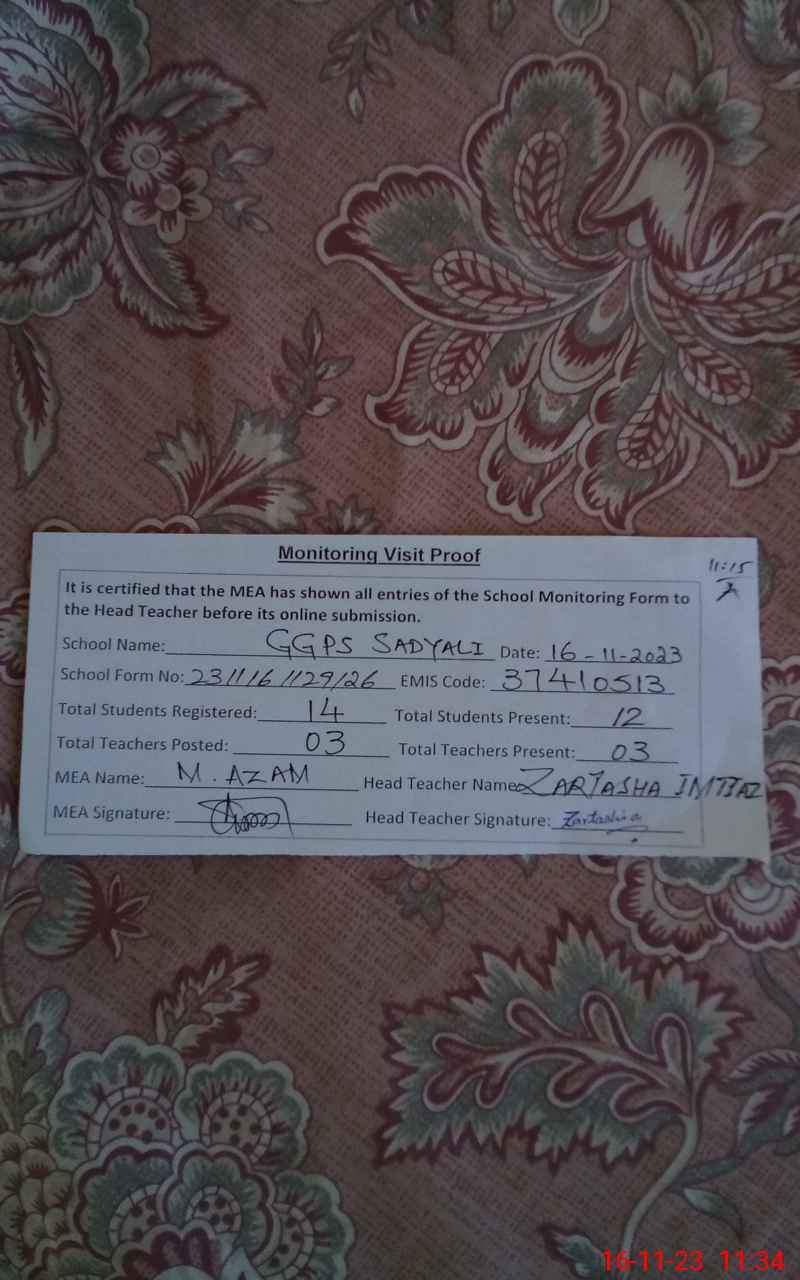 Monitoring Visit Proof
11:15
It is certified that the MEA has shown all entries of the School Monitoring Form to
the Head Teacher before its online submission.
School Name: GGPS SADYALI Date: 16-11-2023
School Form No: 231116 1129126 EMIS Code: 37410513
Total Students Registered: 14 Total Students Present: 12
Total Teachers Posted: 03 Total Teachers Present: 03
MEA Name: M. AZAM Head Teacher Name: ZARTASHA IMTIAZ
MEA Signature: Head Teacher Signature: Zartasha
16-11-23 11:34